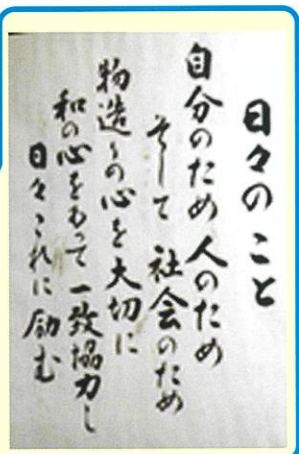 日々のこと
自分のため人のため
そして 社会のため
物造りの心を大切に
和の心をもって一致協力し
日々これに励む